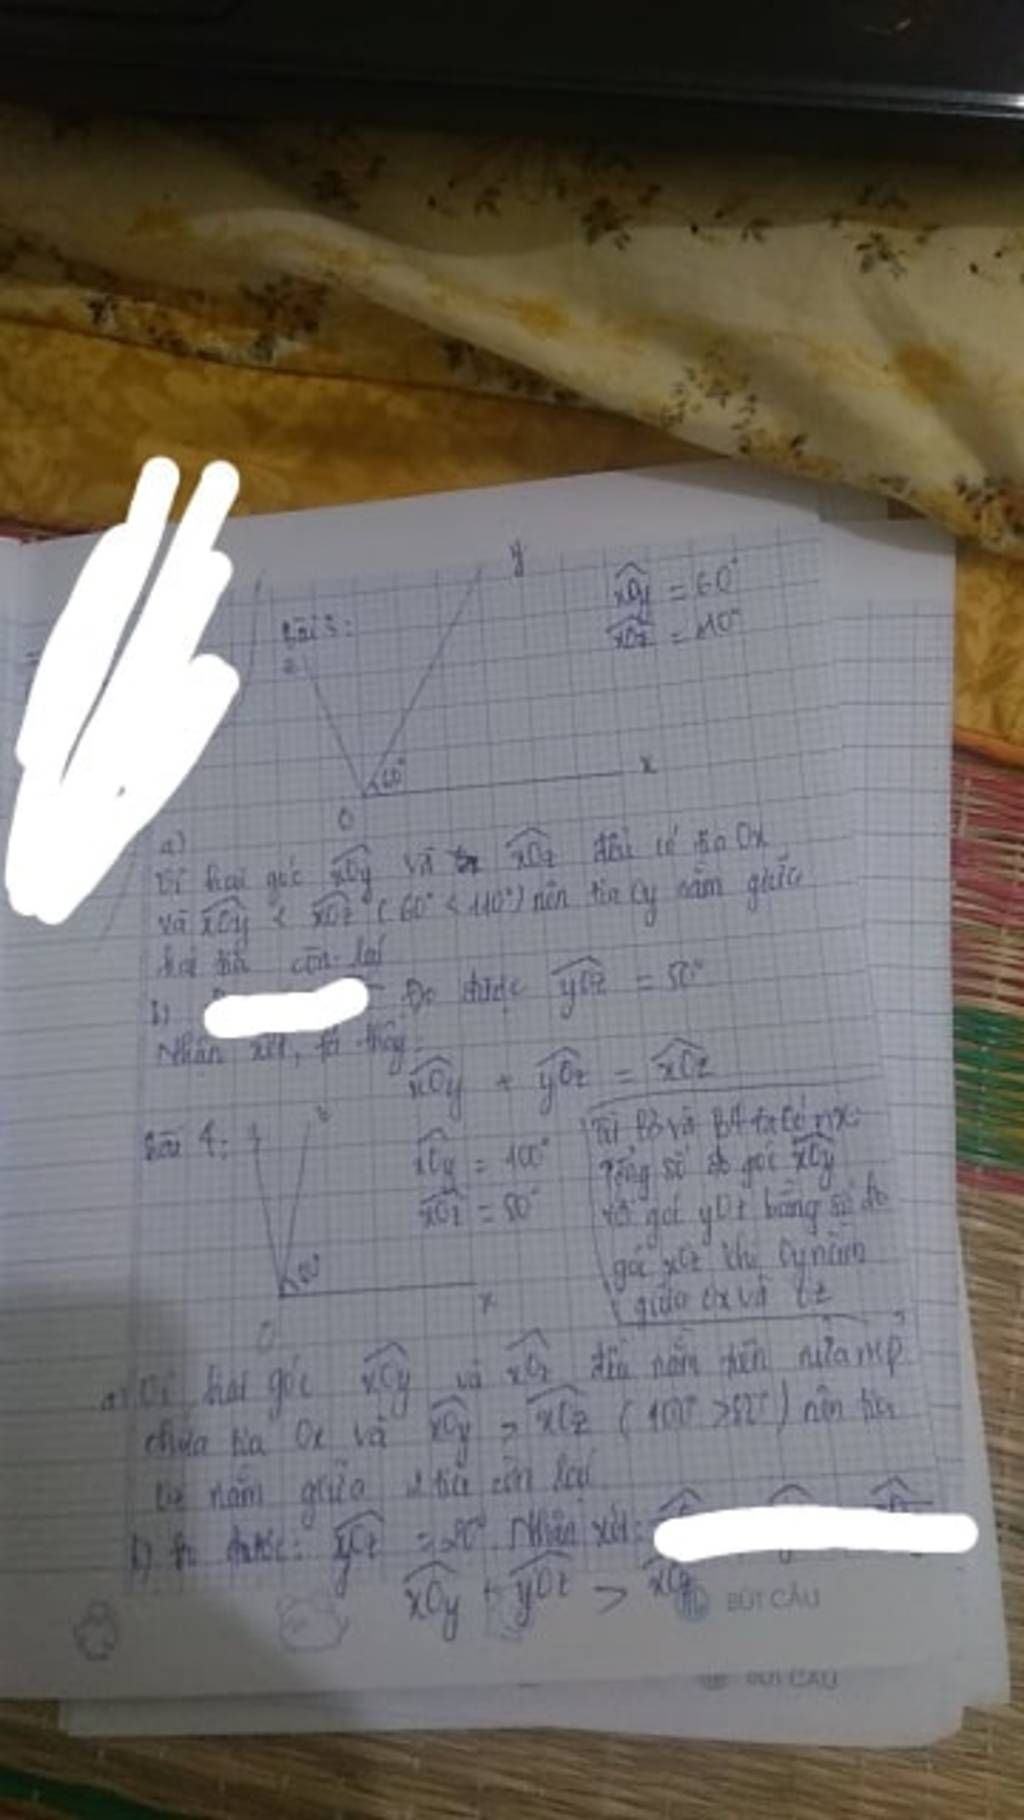 y
xOy = 60°
Bài 3:
xOz = 110°
z
60°
x
O
a)
Vì hai góc xOy và xOz đều có tia Ox
và xOy < xOz (60° < 110°) nên tia Oy nằm giữa
hai tia còn lại
b) Đo được yOz = 50°
Nhận xét, ta thấy:
xOy + yOz = xOz
Bài 4:
z
xOy = 100°
xOz = 80°
80°
x
O
Từ B3 và B4 ta có nx:
Tổng số đo góc xOy
và góc yOz bằng số đo
góc xOz khi Oy nằm
giữa Ox và Oz
a) Vì hai góc xOy và xOz đều nằm trên nửa mp
chứa tia Ox và xOy > xOz (100° > 80°) nên tia
Oz nằm giữa 2 tia còn lại
b) Đo được: yOz = 20° Nhận xét:
xOy + yOz > xOz
BÚT CẦU
BÚT CẦU